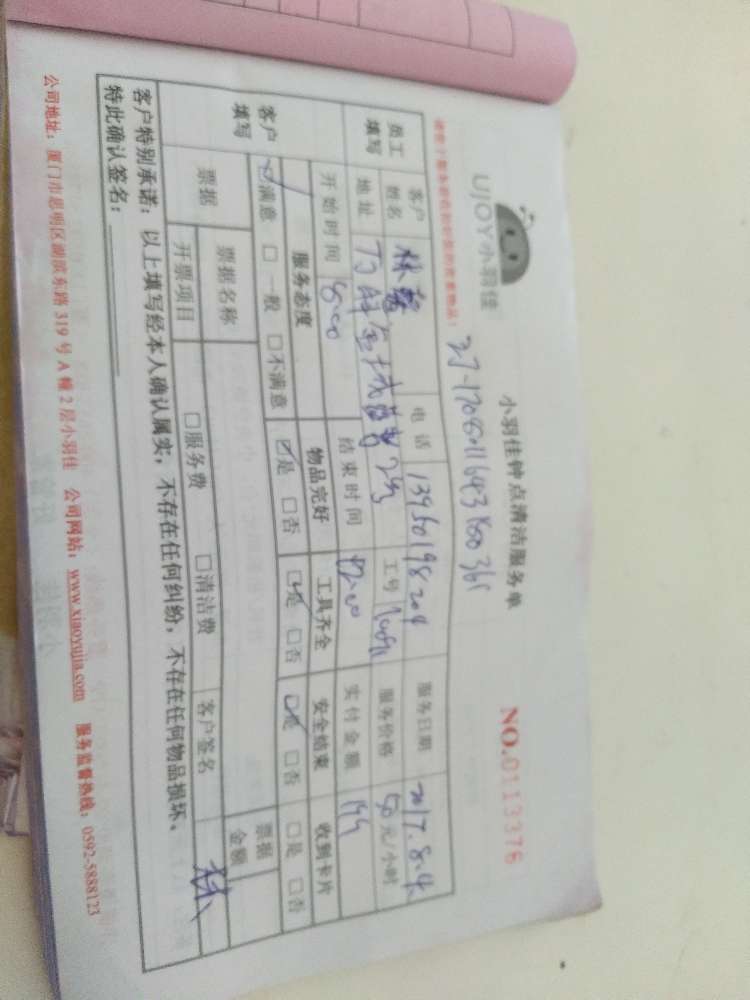 UJOY小羽佳
小羽佳钟点清洁服务单
NO.0113376
客户姓名 林 电话 服务日期 2017.8.4
员工填写
地址 工号 服务价格 50元/小时
开始时间 8:00 结束时间 12:00 实付金额
客户填写
服务态度 物品完好 工具齐全 安全结束 收到卡片
☑满意 □一般 □不满意 ☑是 □否 ☑是 □否 ☑是 □否 □是 □否
票据 票据名称 票据金额
开票项目 □服务费 □清洁费 客户签名 林
客户特别承诺：以上填写经本人确认属实，不存在任何纠纷，不存在任何物品损坏，
特此确认签名：
公司地址：厦门市思明区湖滨东路319号A幢2层小羽佳 公司网站：www.xiaoyujia.com 服务监督热线：0592-5888123